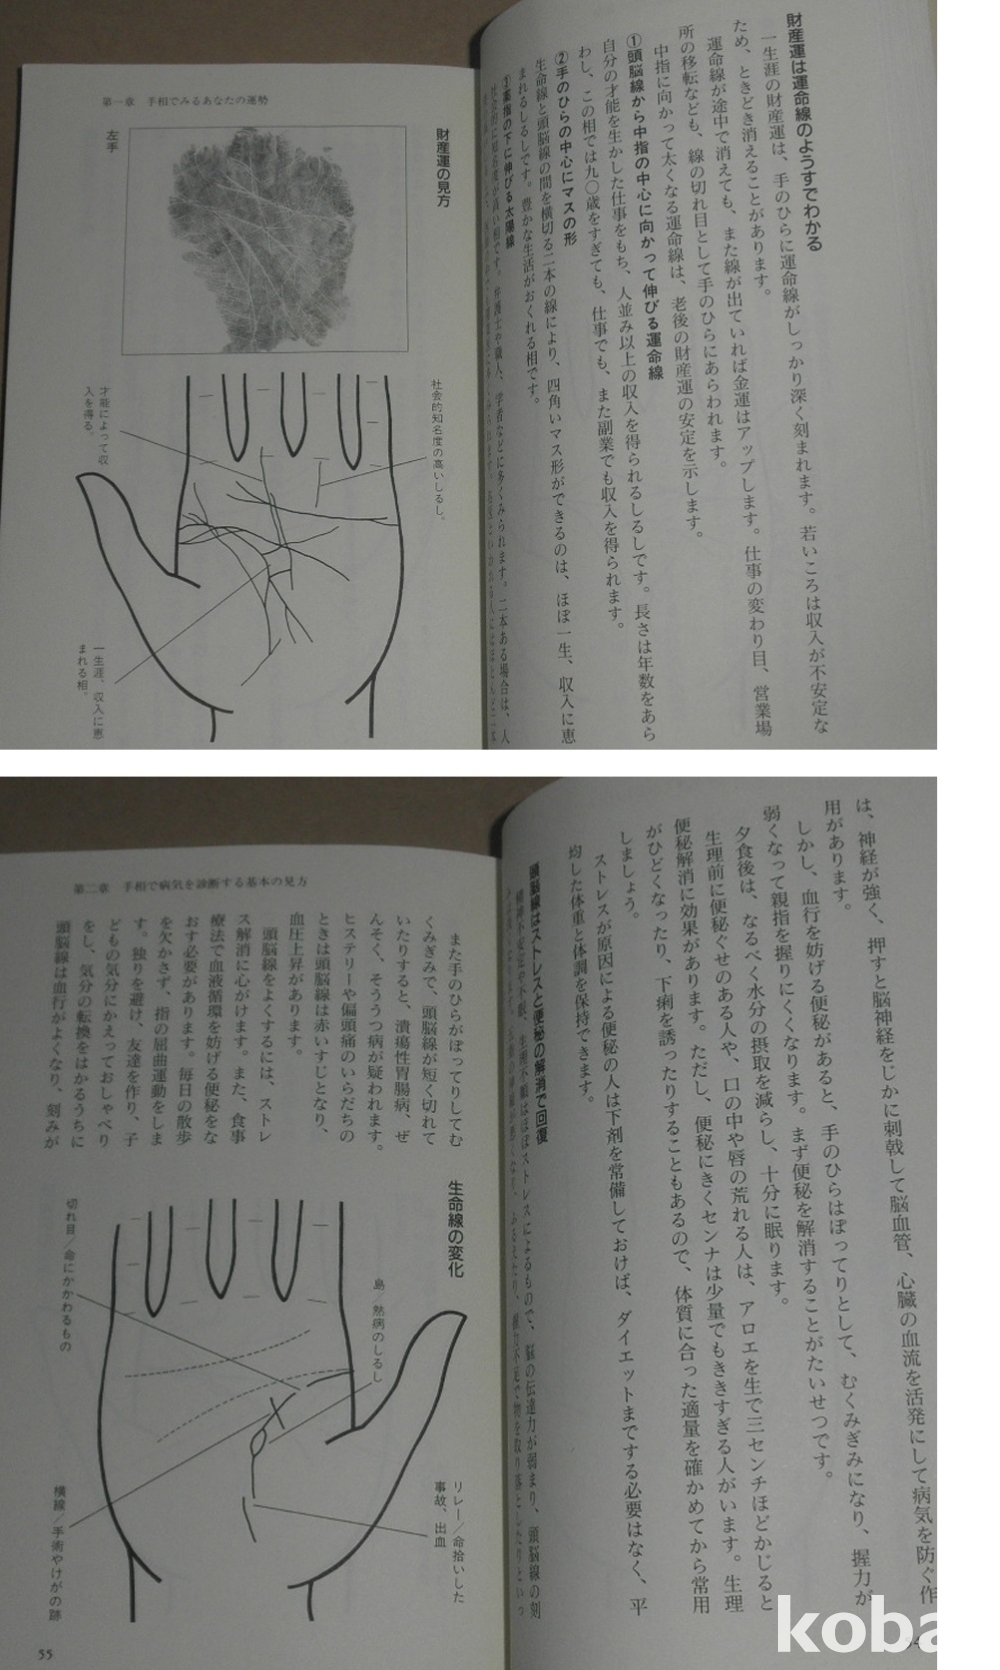 財産運は運命線のようすでわかる
一生涯の財産運は、手のひらに運命線がしっかり深く刻まれます。若いころは収入が不安定な
ため、ときどき消えることがあります。
運命線が途中で消えても、また線が出ていれば金運はアップします。仕事の変わり目、営業場
所の移転なども、線の切れ目として手のひらにあらわれます。
中指に向かって太くなる運命線は、老後の財産運の安定を示します。
①頭脳線から中指の中心に向かって伸びる運命線
自分の才能を生かした仕事をもち、人並み以上の収入を得られるしるしです。長さは年数をあら
わし、この相では九〇歳をすぎても、仕事でも、また副業でも収入を得られます。
②手のひらの中心にマスの形
生命線と頭脳線の間を横切る二本の線により、四角いマス形ができるのは、ほぼ一生、収入に恵
まれるしるしです。豊かな生活がおくれる相です。
③薬指の下に伸びる太陽線
社会的に知名度が高い相です。弁護士や職人、学者などに多くみられます。二本ある場合は、人
第一章 手相でみるあなたの運勢
財産運の見方
左手
社会的知名度の高いしるし。
才能によって収
入を得る。
一生涯、収入に恵
まれる相。
は、神経が強く、押すと脳神経をじかに刺戟して脳血管、心臓の血流を活発にして病気を防ぐ作
用があります。
しかし、血行を妨げる便秘があると、手のひらはぼってりとして、むくみぎみになり、握力が
弱くなって親指を握りにくくなります。まず便秘を解消することがたいせつです。
夕食後は、なるべく水分の摂取を減らし、十分に眠ります。
生理前に便秘ぐせのある人や、口の中や唇の荒れる人は、アロエを生で三センチほどかじると
便秘解消に効果があります。ただし、便秘にきくセンナは少量でもききすぎる人がいます。生理
がひどくなったり、下痢を誘ったりすることもあるので、体質に合った適量を確かめてから常用
しましょう。
ストレスが原因による便秘の人は下剤を常備しておけば、ダイエットまでする必要はなく、平
均した体重と体調を保持できます。
頭脳線はストレスと便秘の解消で回復
精神不安定や不眠、生理不順はほぼストレスによるもので、脳の伝達力が弱まり、頭脳線の刻
第二章 手相で病気を診断する基本の見方
また手のひらがぼってりしてむ
くみぎみで、頭脳線が短く切れて
いたりすると、潰瘍性胃腸病、ぜ
んそく、そううつ病が疑われます。
ヒステリーや偏頭痛のいらだちの
ときは頭脳線は赤いすじとなり、
血圧上昇があります。
頭脳線をよくするには、ストレ
ス解消に心がけます。また、食事
療法で血液循環を妨げる便秘をな
おす必要があります。毎日の散歩
を欠かさず、指の屈曲運動をしま
す。独りを避け、友達を作り、子
どもの気分にかえっておしゃべり
をし、気分の転換をはかるうちに
頭脳線は血行がよくなり、刻みが
生命線の変化
島／熱病のしるし
切れ目／命にかかわるもの
リレー／命拾いした
事故、出血
横線／手術やけがの跡
55
koba